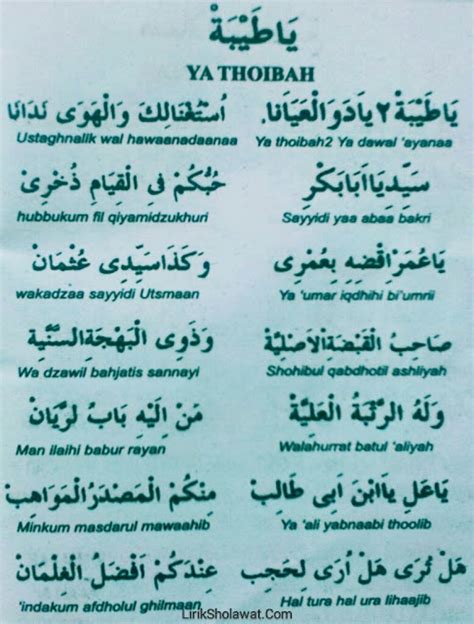 يَا طَيْبَةْ
YA THOIBAH
يَا طَيْبَةْ ٢ يَا دَوَ الْعَيَانَا. اُسْتَغْنَالِكْ وَالْهَوَى نَدَانَا
Ya thoibah2 Ya dawal 'ayanaa Ustaghnalik wal hawaanadaanaa
سَيِّدِيَا اَبَابَكَرِ حُبُّكُمْ فِى الْقِيَامِ ذُخْرِىْ
Sayyidi yaa abaa bakri hubbukum fil qiyamidzukhuri
يَاعُمَرْ اِقْضِهِ بِعُمْرِى وَكَذَا سَيِّدِى عُثْمَانْ
Ya 'umar iqdhihi bi'umrii wakadzaa sayyidi Utsmaan
صَاحِبُ الْقَبْضَةِ الْاَصْلِيَّةْ وَذَوِى الْبَهْجَةِ السَّنِيَّةْ
Shohibul qabdhotil ashliyah Wa dzawil bahjatis sannayi
وَلَهُ الرُّتْبَةُ الْعَلِيَّةْ مَنْ اِلَيْهِ بَابُ لرَّيَانْ
Walahurrat batul 'aliyah Man ilaihi babur rayan
يَاعَلِ يَاابْنَ اَبِى طَالِبْ مِنْكُمْ الْمَصْدَرُ الْمَوَاهِبْ
Ya 'ali yabnaabi thoolib Minkum masdarul mawaahib
هَلْ تُرَى هَلْ اُرَى لِحَجِبْ عِنْدَكُمْ اَفْضَلُ الْغِلْمَانْ
Hal tura hal ura lihaajib 'indakum afdholul ghilmaan
LirikSholawat.Com